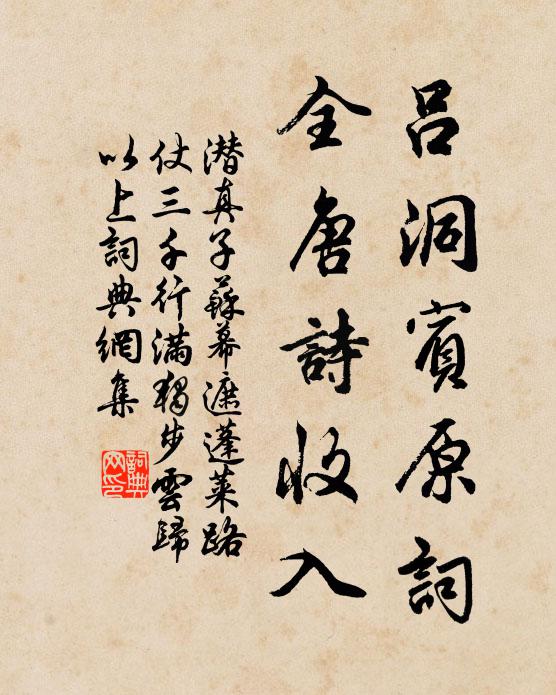 呂洞賓原詞
全唐詩收入
潜真子蘇幕遮蓬萊路
仗三千行滿獨步雲歸
以上詞典網集
詞典
网印